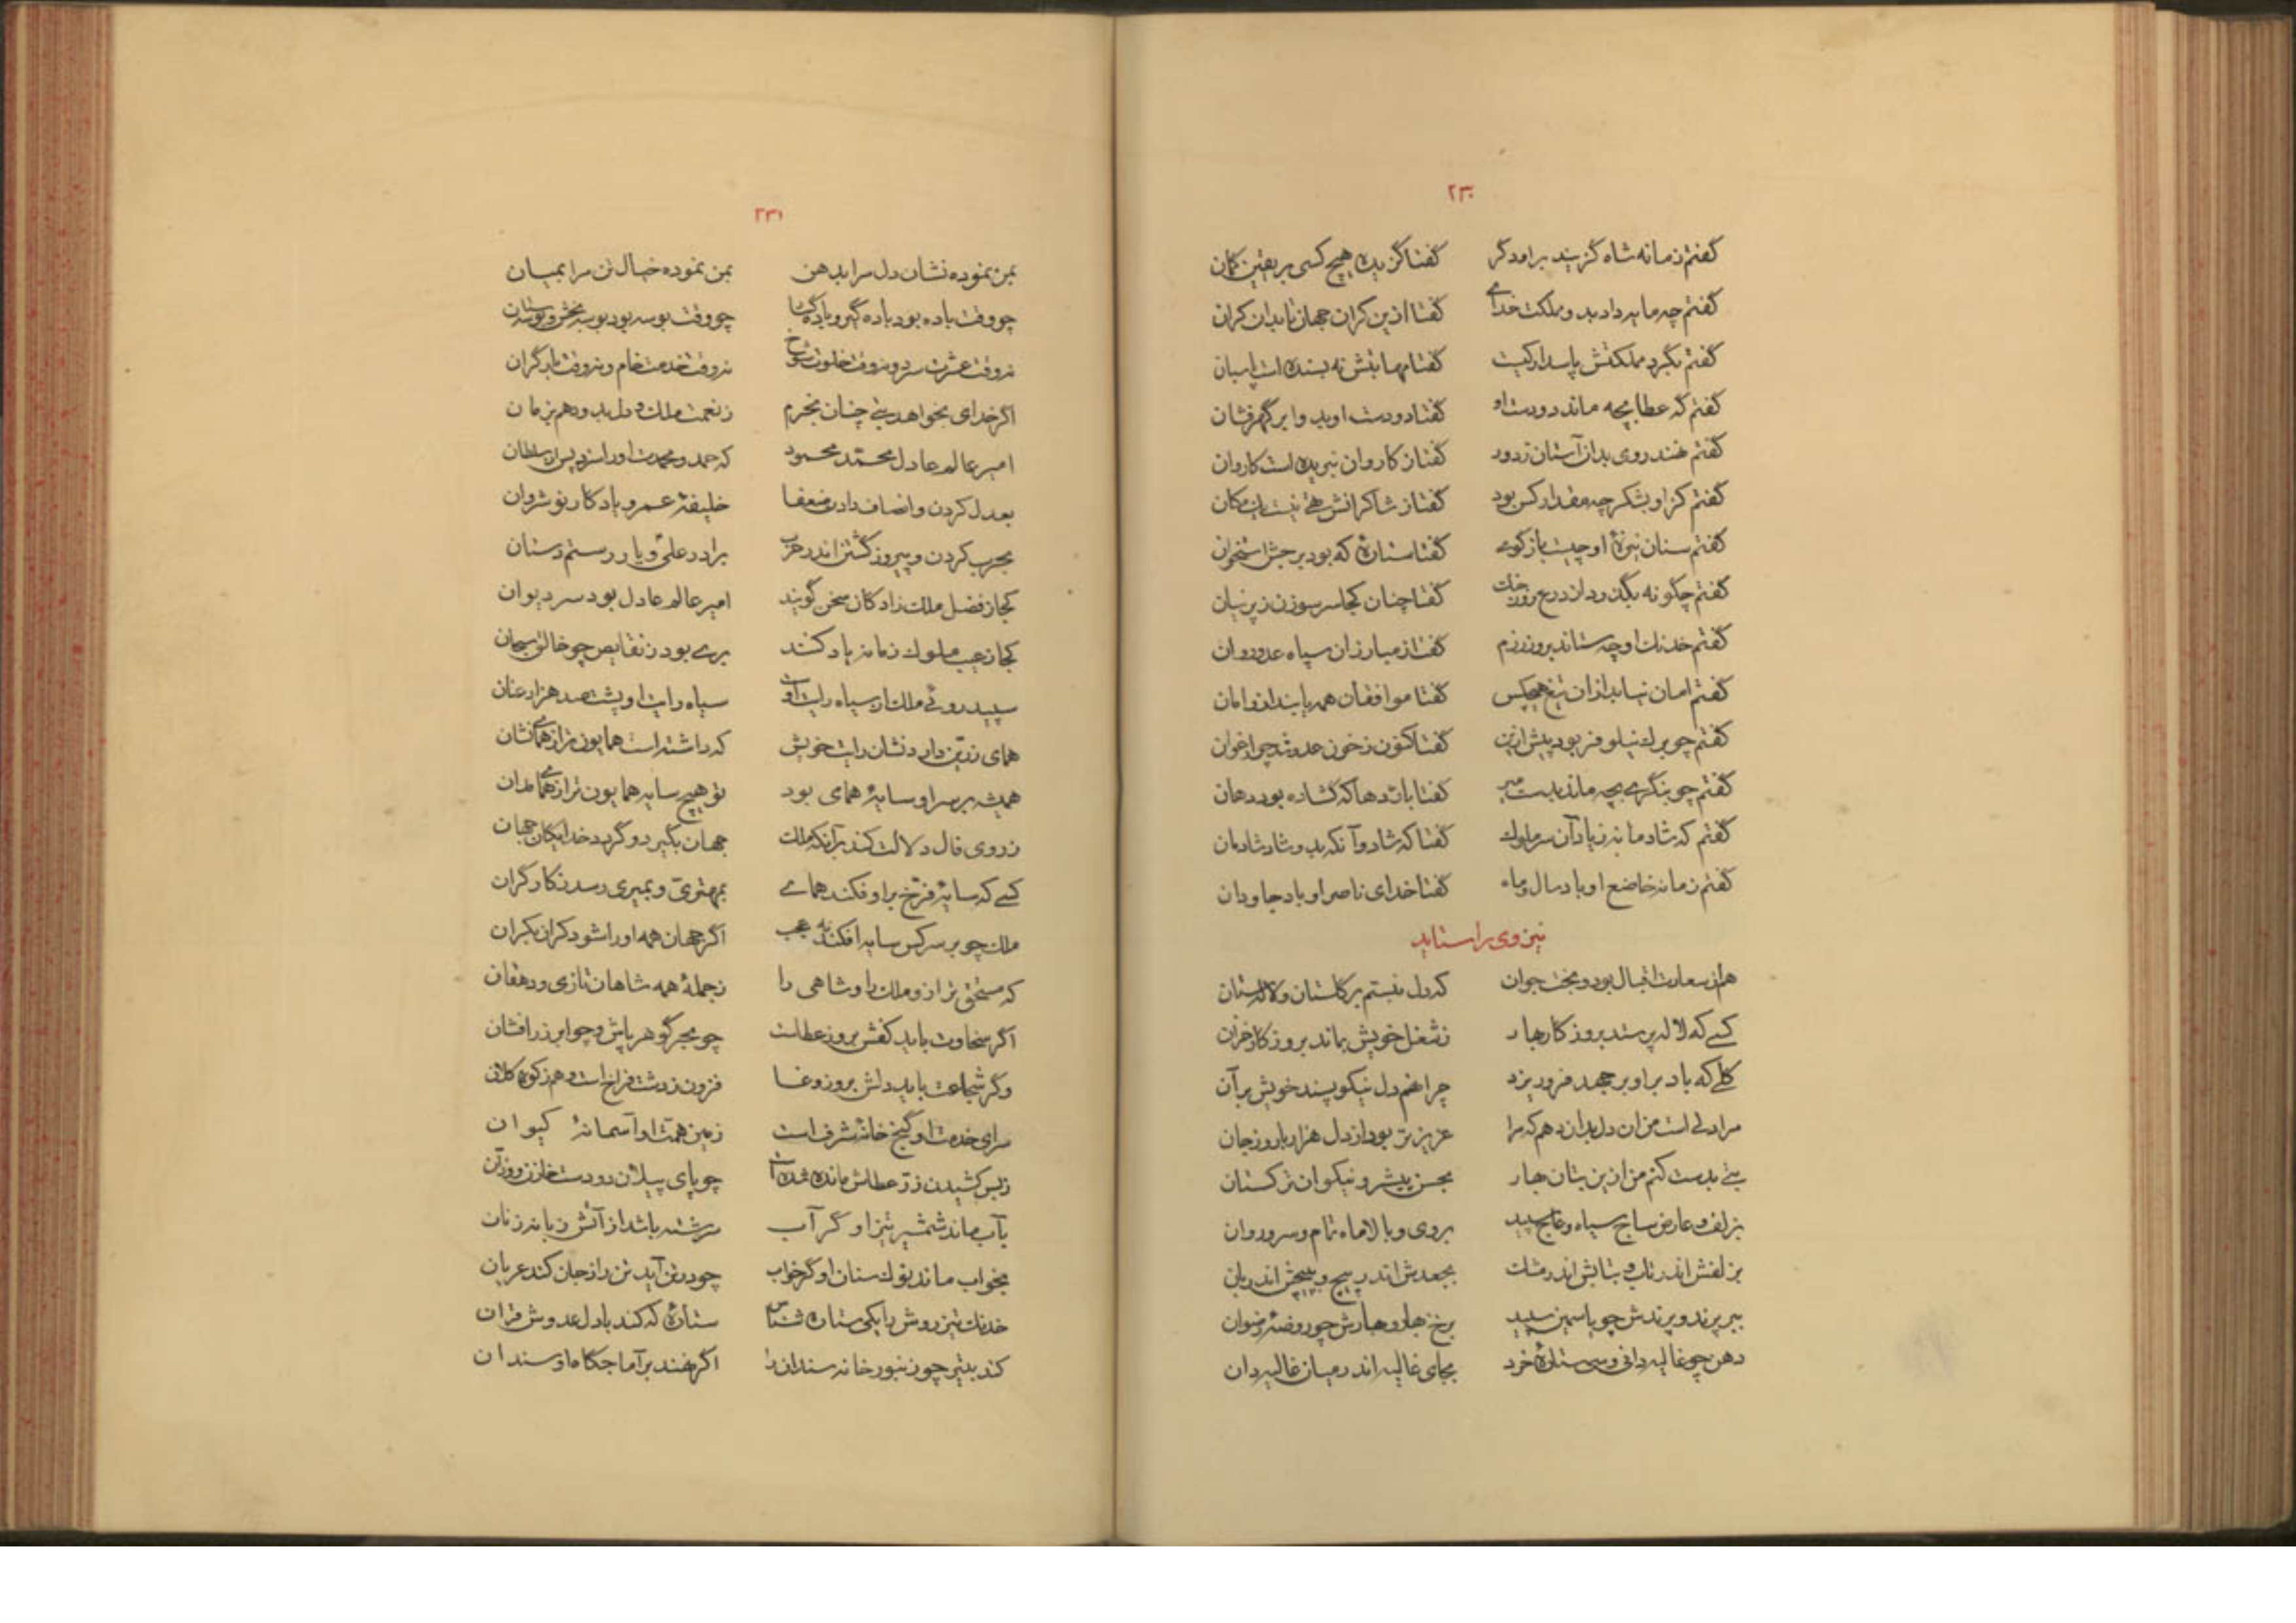 ۲۳۰
گفتم زمانه شاه گزیند بر او دگر گفتا گزیده هیچ کسی بر یقین گمان
گفتم چه مایه داد بدو مملکت خدای گفتا ازین کران جهان تا بدان کران
گفتم بگرد مملکتش پاسدار کیست گفتا مهابتش نه بسنده است پاسبان
گفتم گه عطا بچه ماند دو دست او گفتا دو دست او بدو ابر گهرفشان
گفتم نهند روی بدان آستان ز دور گفتا ز کاروان نبریده است کاروان
گفتم کز او بشکر چه مقدار کس بود گفتا ز شاکرانش تهی نیست یک مکان
گفتم سنان نیزهٔ او چیست باز گوی گفتا ستارهٔ که بود برجش استخوان
گفتم چگونه بگذرد از درع روز گفتا چنان کجا سر سوزن ز پرنیان
گفتم خدنگ او چه ستاند بروز رزم گفتا ز مبارزان سپاه عدو روان
گفتم امان نیابد ازان تیغ هیچکس گفتا موافقان همه یابند ازو امان
گفتم چو برگ نیلوفر بود پیش ازین گفتا کنون ز خون عدو شد چو ارغوان
گفتم چو بنگری بچه ماند بدست میر گفتا باژدها که گشاده بود دهان
گفتم که شادمانه زیاد آن سر ملوک گفتا که شاد و آنکه بدو شاد شادمان
گفتم زمانه خاضع او باد سال و ماه گفتا خدای ناصر او باد جاودان
نیز وی را ستاید
هم از سعادت و اقبال بود و بخت جوان که دل نبستم بر گلستان و لالستان
کسی که لاله پرستد بروز کار بهار ز شغل خویش بماند بروز کار خزان
گلی که باد بر او بر جهد فرو ریزد چرا نهم دل نیکو پسند خویش بر آن
مرا دلی است من آن دل بدان دهم که مرا عزیزتر بود از دل هزار بار و ز جان
بتی بدست کنم من ازین بتان بهار بحسن پیشرو نیکوان ترکستان
بزلف و عارض ساج سیاه و عاج سپید بروی و بالا ماه تمام و سرو روان
بزلفش اندر تاب و بتابش اندر مشک بجعدش اندر پیچ و بپیچش اندر بان
ببر پرند و پرندش چو یاسمین سپید برخ بهار و بهارش چو روضهٔ رضوان
دهن چو غالیه دانی و سی ستارهٔ خرد بجای غالیه اندر میان غالیه دان
۲۳۱
بمن نموده نشان دل مرا بدهن بمن نموده خیال تن مرا بمیان
چو وقت باده بود باده گیر و باده گسار چو وقت بوسه بود بوسه بخش و بوسه ستان
نه وقت عشرت سرد و نه وقت خلوت شوخ نه وقت خدمت خام و نه وقت ناز گران
اگر خدای بخواهد بتی چنان بخرم ز نعمت ملک و دل بدو دهم بزمان
امیر عالم عادل محمد محمود که حمد و محمدت او را سزد پس از سلطان
بعدل کردن و انصاف دادن ضعفا خلیفهٔ عمر و یادگار نوشروان
بحرب کردن و پیروز گشتن اندر حرب برادر علی و یار رستم دستان
کجا ز فضل ملک زادگان سخن گویند امیر عالم عادل بود سر دیوان
کجا ز عیب ملوک زمانه یاد کنند بری بود ز نقایص چو خالق سبحان
سپید روی ملک از سیاه رایت اوست سیاه رایت او پشت صد هزار عنان
همای زرین دارد نشان رایت خویش که داشته است همایون تر از همای نشان
همیشه بر سر او سایهٔ همای بود تو هیچ سایه همایون تر از همای مدان
ز روی فال دلالت کند بر آنکه ملک جهان بگیرد و گردد خدایگان جهان
کسی که سایهٔ فرخ بر او فکند همای بمهتری و بمیری رسد ز کار گران
ملک چو بر سر کس سایه افکند نه عجب اگر جهان همه او را شود کران بکران
که مستحق تر ازو ملک را و شاهی را ز جملهٔ همه شاهان تازی و دهقان
اگر سخاوت باید کفش بروز عطاست چو بحر گوهر پاش و چو ابر زر افشان
و گر شجاعت باید دلش بروز وغا فزون ز دشت فراخ است و هم ز کوه کلان
سرای خدمت او گنج خانهٔ شرف است زمین همت او آسمانهٔ کیوان
ز بس کشیدن زر عطاش مانده شده است چو پای پیلان دو دست خازن و وزان
بآب ماند شمشیر تیز او گر آب سرشته باشد از آتش زبانه زنان
بخواب ماند نوک سنان او گر خواب چو در تن آید تن را ز جان کند عریان
خدنگ تیزروش را یکی ستاره شناس ستارهٔ که کند با دل عدوش قران
کند بتیر چو زنبور خانه سندان را اگر نهند بر آماجگاه او سندان